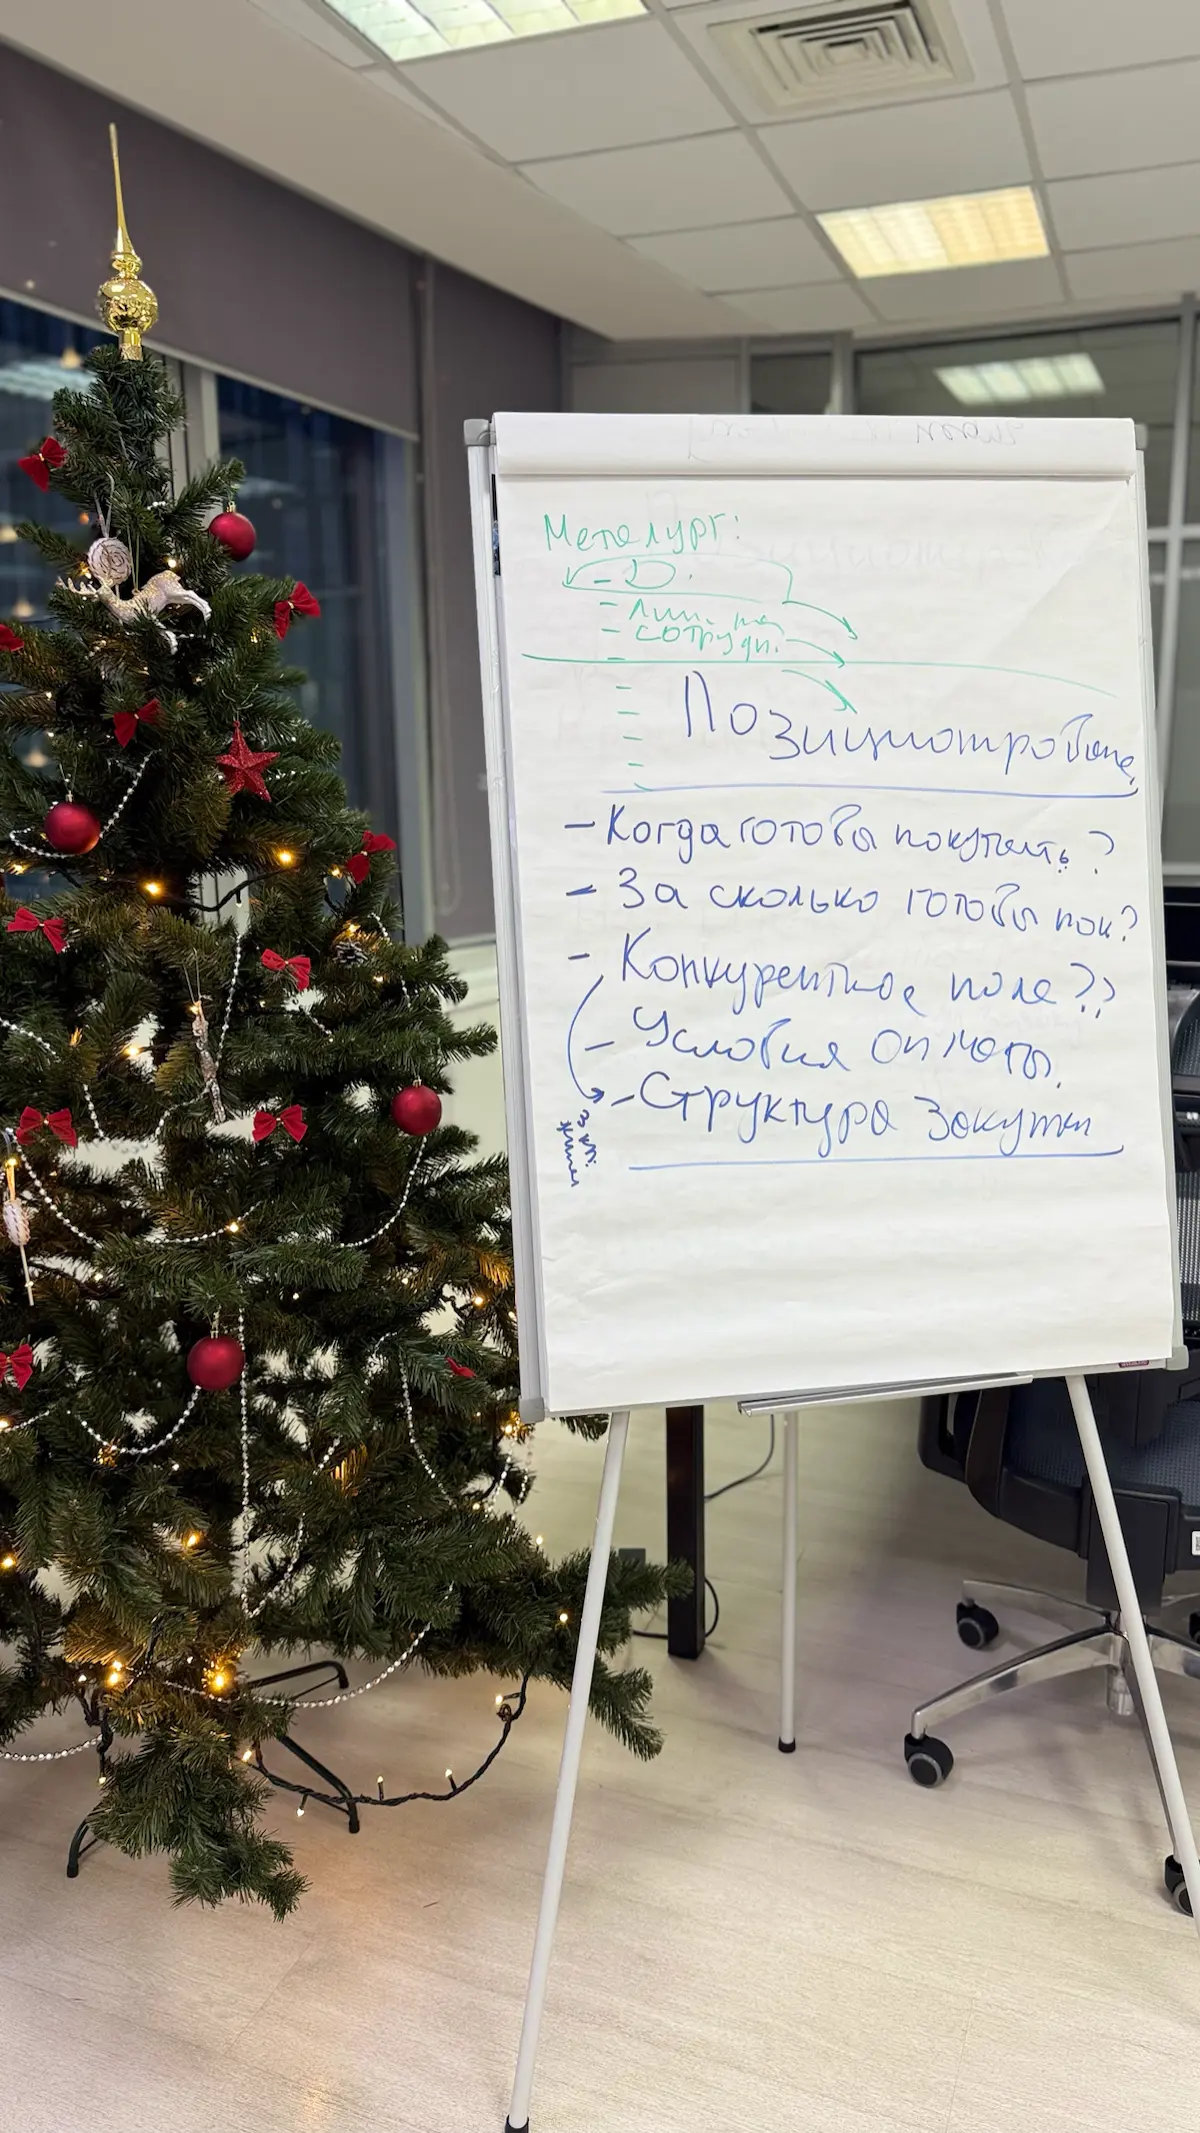 Металург:
- D.
- Лич. на
- сотрудн.
Позиционирование
- Когда готовы покупать?
- За сколько готовы пок?
- Конкурентное поле??
- Условия оплаты.
- Структура Закупки
3 кп.